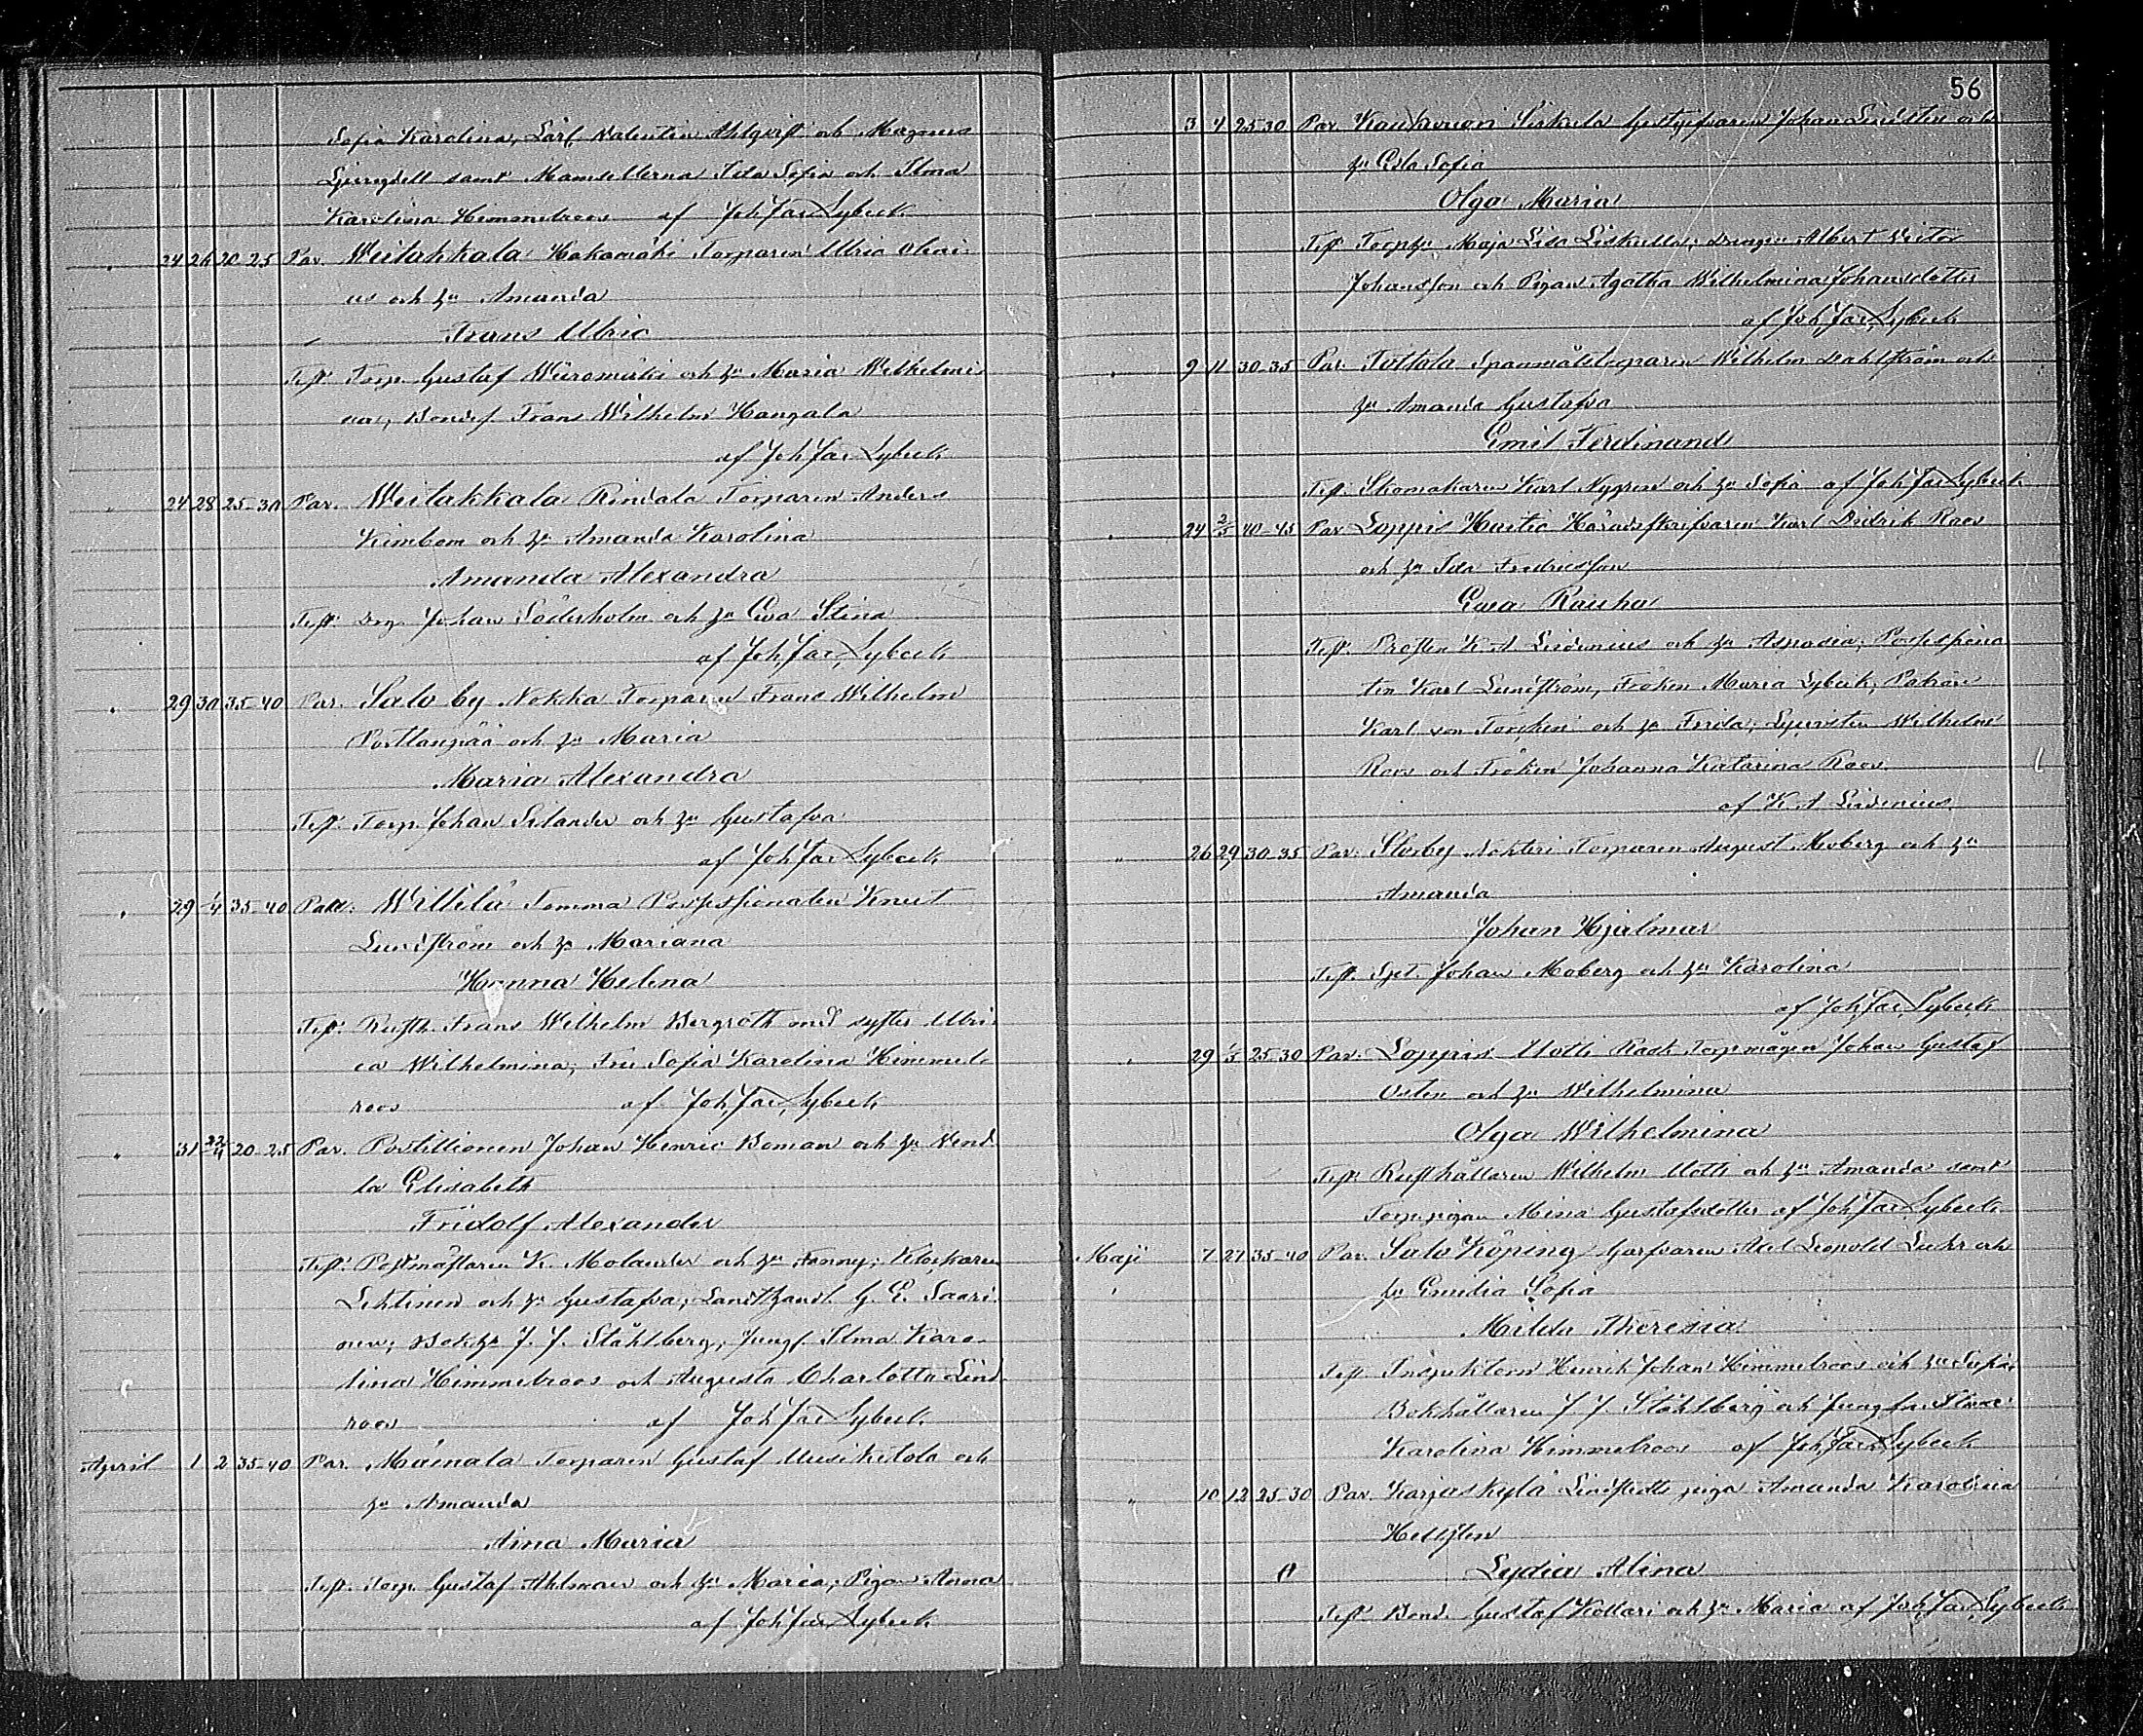 Sofia Karolina, Carl Valentin Ahlqvist och Magnus
Ljungdell samt Mamsellerna Ida Sofia och Ilma
Karolina Himmelroos af Joh Jac Lybeck
24 26 20-25 Par. Weitakkala Hakamäki Torparen Ulric Olini
us och hu Amanda
Frans Ulric
Test: Torp. Gustaf Wäromäki och hu Maria Wilhelmi
na, Bondes. Frans Wilhelm Hangala
af Joh Jac Lybeck
24 28 25-30 Par. Weitakkala Rindala Torparen Anders
Kimbom och hu Amanda Karolina
Amanda Alexandra
Test: Drg. Johan Söderholm och hu Eva Stina
af Joh Jac Lybeck
29 30 35-40 Par. Salo by Nokka Torparen Frans Wilhelm
och hu Maria
Maria Alexandra
Test: Torp. Johan Selander och hu Gustafva
af Joh Jac Lybeck
29 1/4 35-40 Par: Willilä Tomma Possessionaten Knut
Lundström och hu Mariana
Hanna Helena
Test: Rusth. Frans Wilhelm Bergroth med syster Ulri
ca Wilhelmina, Fru Sofia Karolina Himmel
roos af Joh Jac Lybeck
31 22/4 20-25 Par. Postillionen Johan Henric Boman och hu Vend
la Elisabeth
Fridolf Alexander
Test: Postmästaren K. Molander och hu Fanny; Klockaren
Lehtinen och hu Gustafva, Landthandl. G. E. Saari
nen; Bokh. J. J. Ståhlberg, Jungf. Ilma Karo
lina Himmelroos och Augusta Charlotta Lind
roos af Joh Jac Lybeck
April 1 2 35-40 Par. Moinala Torparen Gustaf Uusikitola och
hu Amanda
Aina Maria
Test: Torp. Gustaf Ahlman och hu Maria; Pigan Anna
af Joh Jac Lybeck
56
3 4 25-30 Par. Kaukvuori Liskula Gästgifvaren Johan Lindsten och
hu Eda Sofia
Olga Maria
Test: Torphu Maja Lisa Liskulla, Drengen Albert Victor
Johansson och Pigan Agatha Wilhelmina Johansdotter
af Joh Jac Lybeck
9 11 30-35 Par. Tottola Spanmålstorparen Wilhelm Dahlström och
hu Amanda Gustafva
Emil Ferdinand
Test: Skomakaren Karl Nygren och hu Sofia af Joh Jac Lybeck
24 2/5 40-45 Par. Loppis Häradsskrifvaren Karl Didrik Roos
och hu Ida Fredricsson
Ewa Rauha
Test: Prosten K A Lindenius och hu Aspasia; Possessiona
ten Karl Lundström, Fröken Maria Lybeck,
Karl von och hu Frida; Wilhelm
Roos och Fröken Johanna Katarina Roos
af K A Lindenius
" 26 29 30-35 Par: Ylisby Nokteri Torparen August Moberg och hu
Amanda
Johan Hjalmar
Test: Spt. Johan Moberg och hu Karolina
af Joh Jac Lybeck
" 29 1/5 25-30 Par: Loppis Uotti Rask Torpmågen Johan Gustaf
Östen och hu Wilhelmina
Olga Wilhelmina
Test: Rusthållaren Wilhelm Uotti och hu Amanda samt
Torppigan Mina Gustafsdotter af Joh Jac Lybeck
Maji 7 27 35-40 Par. Salo Köping Garfvaren Axel Leopold Luhr och
hu Emilia Sofia
Milda Theresia
Test: Inspektorn Henrik Johan Himmelroos och hu Sofia,
Bokhållaren J J Ståhlberg och Jungfru Ilma
Karolina Himmelroos af Joh Jac Lybeck
" 10 12 25-30 Par. Karjaskylä Lindstedts piga Amanda Karolina
Hellsten
Lydia Alina
Test: Bond. Gustaf Kollari och hu Maria af Joh Jac Lybeck